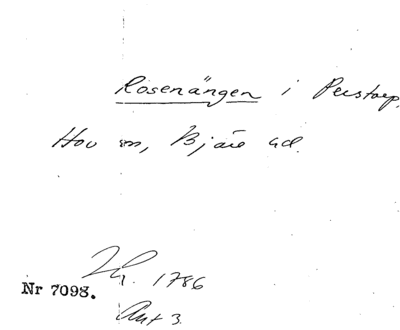 Rosenängen i Perstorp,
Hov sn, Bjäre hd.
1786
Nr 7098.
Akt 3